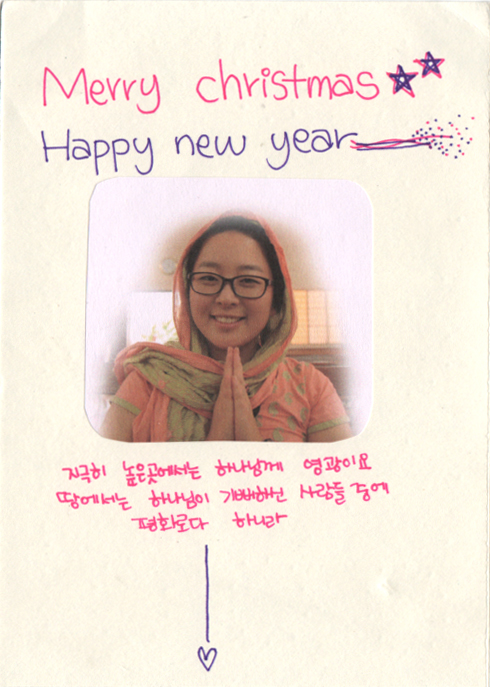 Merry christmas
Happy new year
지극히 높은곳에서는 하나님께 영광이요
땅에서는 하나님이 기뻐하신 사람들 중에
평화로다 하니라